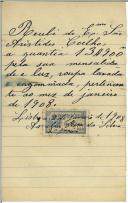 Recebi do Exmo Snr
Aristides Coelho,
a quantia 138$900
pela sua mensalidade
de e luz, roupa lavada
e engommada, pertencente
ao mez de janeiro
de 1908.
Lisboa de 1908
da Silva